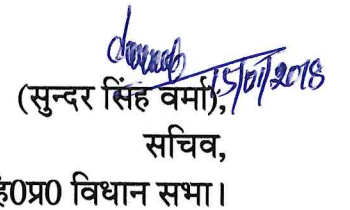 15/01/2018
(सुन्दर सिंह वर्मा),
सचिव,
हि0प्र0 विधान सभा।